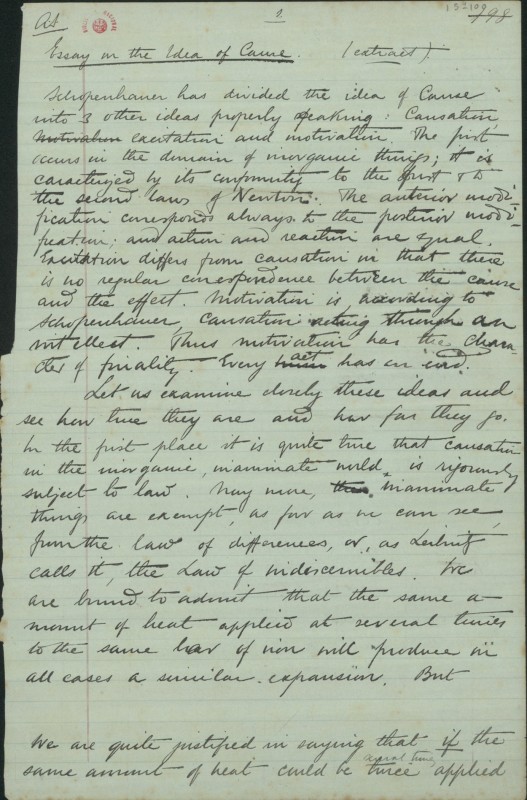 As
1.
132109
798
Essay on the Idea of Cause. (extract).
Schopenhauer has divided the idea of Cause
into 3 other ideas properly speaking: Causation,
motivation excitation and motivation. The first
occurs in the domain of inorganic things; it is
caracterized by its conformity to the first & to
the second laws of Newton. The anterior modi-
fication corresponds always to the posterior modi-
fication; and action and reaction are equal.
Excitation differs from causation in that there
is no regular correspondence between the cause
and the effect. Motivation is according to
Schopenhauer, causation acting through an
intellect. Thus motivation has the charac-
cter of finality. Every act has an end.
Let us examine closely these ideas and
see how true they are and how far they go.
In the first place it is quite true that causation
in the inorganic, inanimate world, is rigorously
subject to law. Nay more, inanimate
things are exempt, as far as we can see,
from the law of differences, or, as Leibnitz
calls it, the Law of indiscernibles. We
are bound to admit that the same a-
mount of heat applied at several times
to the same bar of iron will produce in
all cases a similar expansion. But
We are quite justified in saying that if the
same amount of heat could be twice several times applied